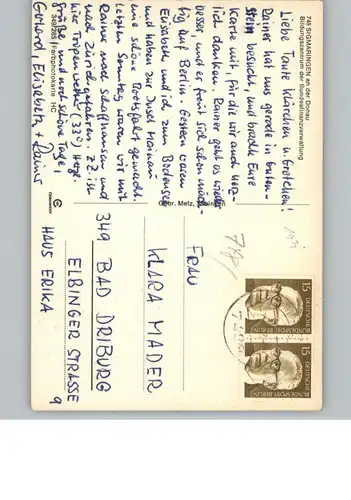 748 SIGMARINGEN an der Donau
Bildungszentrum der Bundesfinanzverwaltung
Liebe Tante Klärchen u. Gretchen!
Rainer hat uns gerade in Guten-
stein besucht, und brachte Eure
Karte mit, für die wir auch herz-
lich danken. Rainer geht es wieder
besser, und er freut sich schon mäch-
tig auf Berlin. Gestern waren
Elisabeth und ich zum Bodensee
und haben zur Insel Mainau
eine schöne Bootsfahrt gemacht.
Letzten Sonntag waren wir mit
Rainer nach Schaffhausen und
nach Zürich gefahren. Z.Z. ist
hier Tropenwetter (33°). Herzl.
Grüße, und noch schöne Tage,
Gerhard, Elisabeth + Rainer
349/265 | Farbphotokarte HC
Gebr. Metz,
FRAU
KLARA MADER
349 BAD DRIBURG
ELBINGER STRASSE 9
HAUS ERIKA
15 DEUTSCHE BUNDESPOST BERLIN
15 DEUTSCHE BUNDESPOST BERLIN